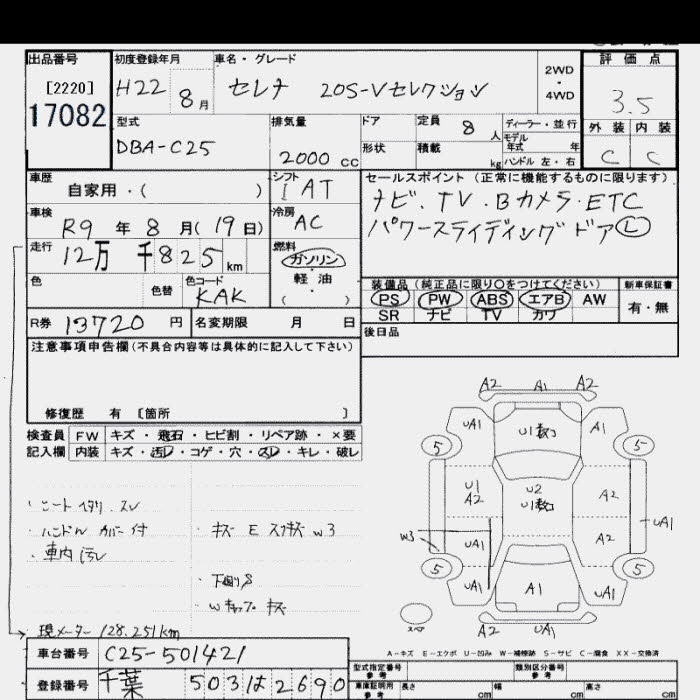 出品番号 初度登録年月 車名・グレード 2WD・4WD 評価点
[2220]
17082
H22 8月 セレナ 20S-Vセレクション 3.5
型式 排気量 ドア 定員 8人 ディーラー・並行 外装 内装
DBA-C25 2000 cc 形状 積載 kg モデル年式 年 ハンドル 左・右 C C
車歴 シフト セールスポイント(正常に機能するものに限ります)
自家用・( ) IAT ナビ、TV・Bカメラ・ETC
車検 R9年8月(19日) 冷房 AC パワースライディングドア(L)
走行 12万千825km 燃料 ガソリン 軽油 ( )
色 色替 色コード KAK
装備品(純正品に限り○をつけてください) 新車保証書
PS PW ABS エアB AW 有・無
SR ナビ TV カワ
R券 13720円 名変期限 月 日 後日品
注意事項申告欄(不具合内容等は具体的に記入して下さい)
修復歴 有 [箇所 ]
検査員 FW キズ・飛石・ヒビ割・リペア跡・×要
記入欄 内装 キズ・汚レ・コゲ・穴・スレ・キレ・破レ
A2 A1 A2
UA1 U1数コ A1
5 5
U1 A2 U2 U1数コ A2
W3 UA1 A2 UA1
5 5
UA1 A1 UA1
A2 UA1
・ハンドルカバー付
・車内汚レ
・キズ E スリキズ W3
・下廻りS
・Wキャップキズ
現メーター 128.251km
A-キズ E-エクボ U-凹み W-補修跡 S-サビ C-腐食 XX-交換済
車台番号 C25-501421
型式指定番号 参考 類別区分番号 参考
登録番号 千葉 503は2690
車庫証明用 参考 長さ cm 幅 cm 高さ cm